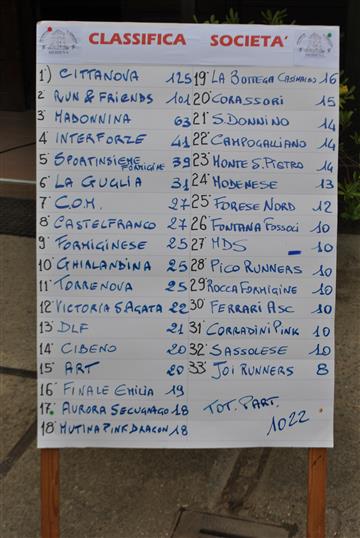 CLASSIFICA SOCIETA'
1°) CITTANOVA 125
2° RUN & FRIENDS 101
3° MADONNINA 63
4° INTERFORZE 41
5° SPORTINSIEME FORMIGINE 39
6° LA GUGLIA 31
7° C.O.M. 27
8° CASTELFRANCO 27
9° FORMIGINESE 25
10° GHIRLANDINA 25
11° TORRENOVA 25
12° VICTORIA S AGATA 22
13° DLF 21
14° CIBENO 20
15° ART 20
16° FINALE EMILIA 19
17° AURORA SECUGNAGO 18
18° MUTINA PINK DRAGON 18
19° LA BOTTEGA 16
20° CORASSORI 15
21° S. DONNINO 14
22° CAMPOGALLIANO 14
23° MONTE S. PIETRO 14
24° MODENESE 13
25° FORESE NORD 12
26° FONTANA FOSSOCI 10
27° MDS 10
28° PICO RUNNERS 10
29° ROCCA FORMIGINE 10
30° FERRARI ASC 10
31° CORRADINI PINK 10
32° SASSOLESE 10
33° JOI RUNNERS 8
TOT. PART.
1022